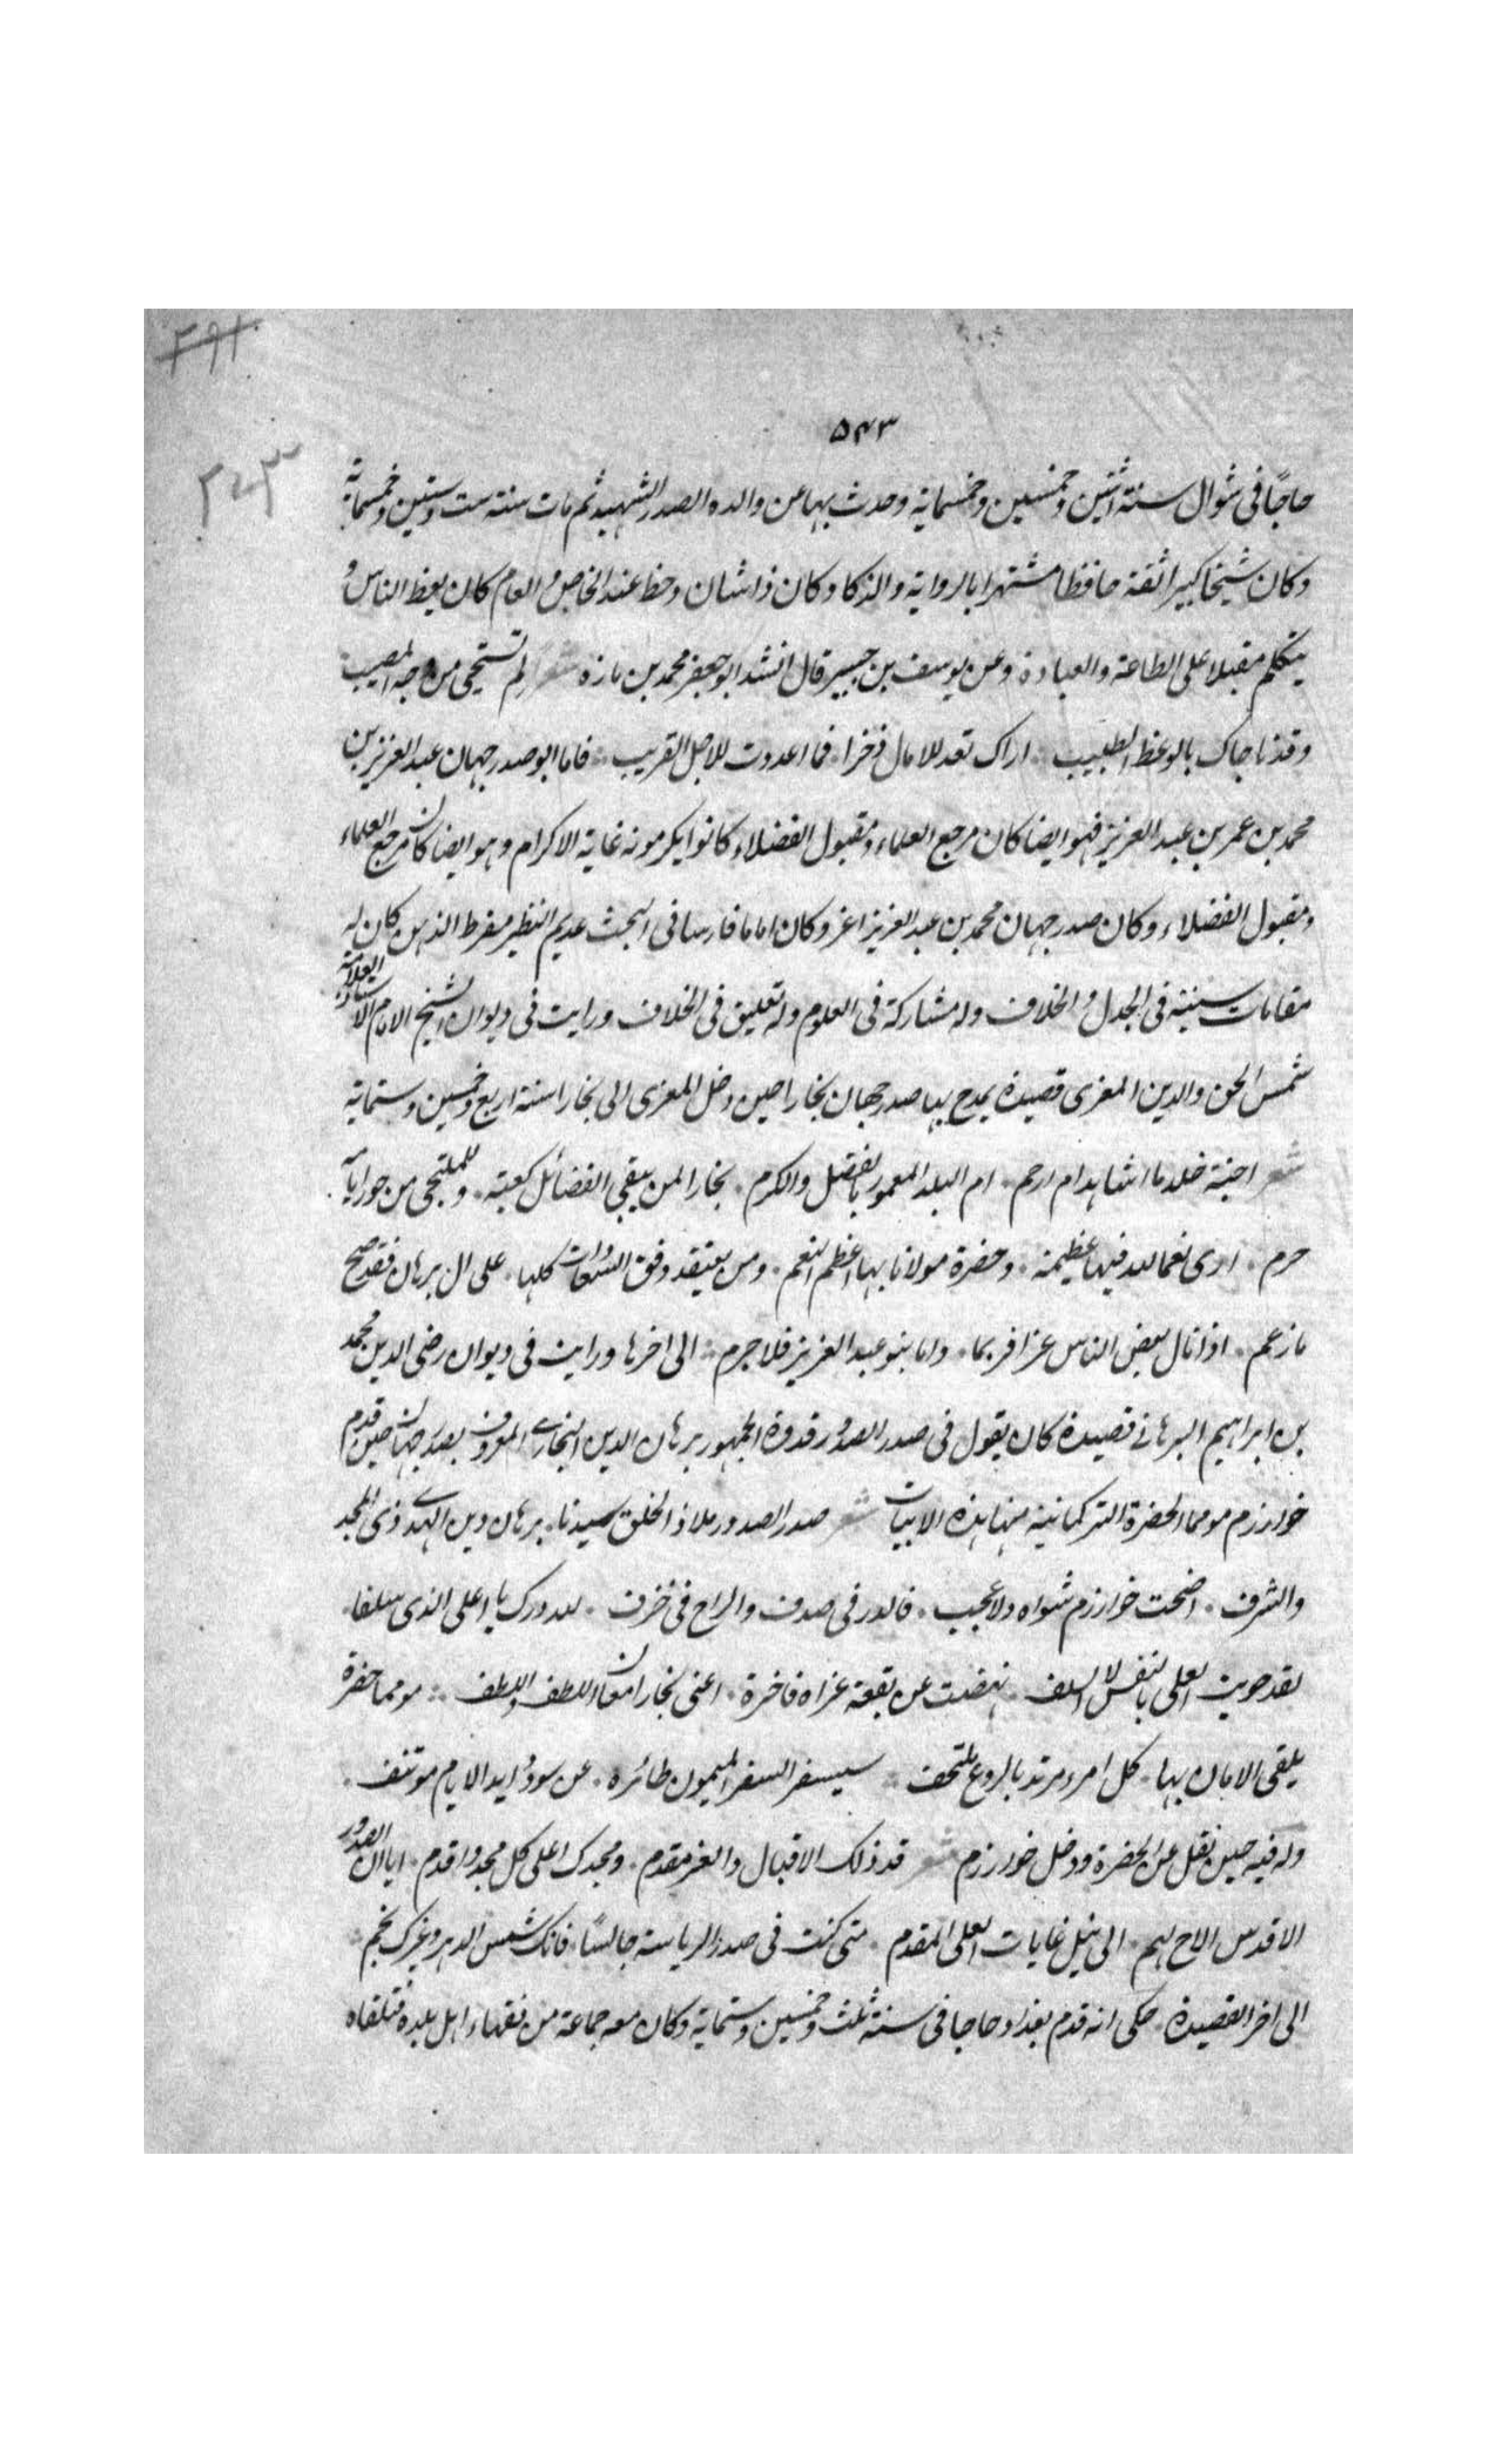 ٥٤٣
حاجًا فى شوال سنة اثنين وخمسين وخمسماية وحدث بها عن والده الصدر الشهيد ثم مات سنة ست وستين وخمسماية
وكان شيخا كبيرا ثقة حافظا مشتهرا بالرواية والذكا وكان ذا شان وحظ عند الخاص والعام كان يعظ الناس و
يتكلم مقبلا على الطاعة والعبادة وعن يوسف بن جبير قال انشد ابو جعفر محمد بن مازه شعر لم تستحيى من وجه المصيب
وقد ناجاك بالوعظ الطبيب اراك تعد للامال ذخرا فما اعددت للاجل القريب فاما ابو صدر جهان عبد العزيز بن
محمد بن عمر بن عبد العزيز فهو ايضا كان مرجع العلماء ومقبول الفضلاء كانوا يكرمونه غاية الاكرام وهو ايضا كان مرجع العلماء
ومقبول الفضلاء وكان صدر جهان محمد بن عبد العزيز اعز وكان اماما فارسا فى البحث عديم النظير مفرط الذهن كان له
مقامات سنية فى الجدل والخلاف وله مشاركة فى العلوم وله تعليق فى الخلاف ورايت فى ديوان الشيخ الامام الاستاذ العلامة
شمس الحق والدين المعزى قصيدة يمدح بها صدر جهان بخارا حين دخل المعزى الى بخارا سنة اربع وخمسين وستماية
شعر اجنة خلد ما اشاهد ام ارم ام البلد المعمور بالفضل والكرم بخارا لمن يبقى الفضائل كعبة وللملتجى من جور ايامه
حرم ارى نعما لله فيها عظيمة وحضرة مولانا بها اعظم النعم ومن يعتقد وقف السعادات كلها على ال برهان فقد صح
ما زعم اذا نال بعض الناس عزا فربما واما بنو عبد العزيز فلا جرم الى اخرها ورايت فى ديوان رضى الدين محمد
بن ابراهيم البرهانے قصيدة كان يقول فى صدر الصدور قدوة الجمهور برهان الدين البخارے المعروف بصدر جهان حين قدم
خوارزم مومما الحضرة التركمانية منها هذه الابيات شعر صدر الصدور ملاذ الخلق سيدنا برهان دين الهدے ذى المجد
والشرف اضحت خوارزم مثواه ولا عجب فالدر فى صدف والراح فى خزف لله درك يا اعلى الذى سلفا
لقد حويت العلى بالنفس لا السلف نهضت عن بقعة غراء فاخرة اعنى بخارا مكان اللطف واللطف مومما حضرة
يلقى الامان بها كل امرء مرتد بالروع ملتحف سيسفر السفر الميمون طائره عن سودد ابد الايام موتنف
وله فيه حين نقل عن الحضرة ودخل خوارزم شعر قد ذلك الاقبال والعز مقدم ومجدك اعلى كل مجد واقدم ايا ال الصدور
الاقدمين الى نيل غايات العلى المقدم متى كنت فى صدر الرياسة جالسًا فانك شمس الدهر وغيرك نجم
الى اخر القصيدة حكى انه قدم بغداد حاجا فى سنة ثلث وخمسين وستماية وكان معه جماعة من فقهاء اهل بلده فتلقاه